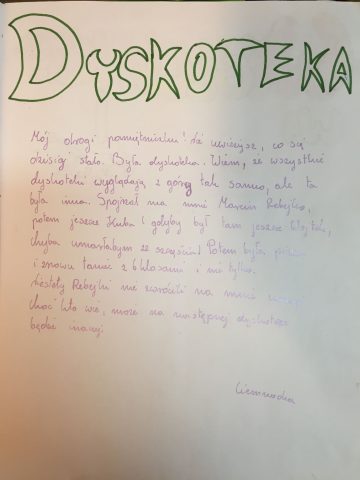 DYSKOTEKA
Mój drogi pamiętniku! Nie uwierzysz, co się
dzisiaj stało. Była dyskoteka. Wiem, że wszystkie
dyskoteki wyglądają z góry tak samo, ale ta
była inna. Spojrzał na mnie Marcin Rebejko,
potem jeszcze Kuba i gdyby był tam jeszcze
chyba umarłabym ze szczęścia! Potem była
i znowu taniec z 6 klasami i nie tylko.
Niestety Rebejki nie zwrócili na mnie uwagi
choć kto wie, może na następnej dyskotece
będzie inaczej